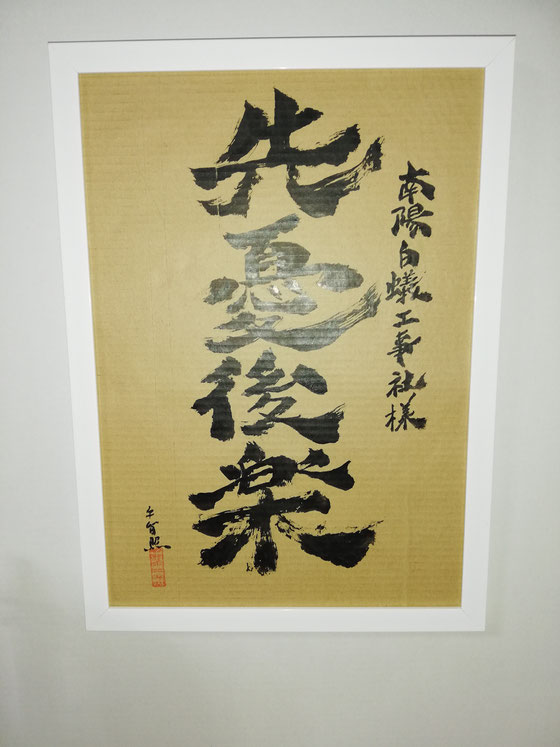 南陽白蟻工事社様
先憂後楽
照